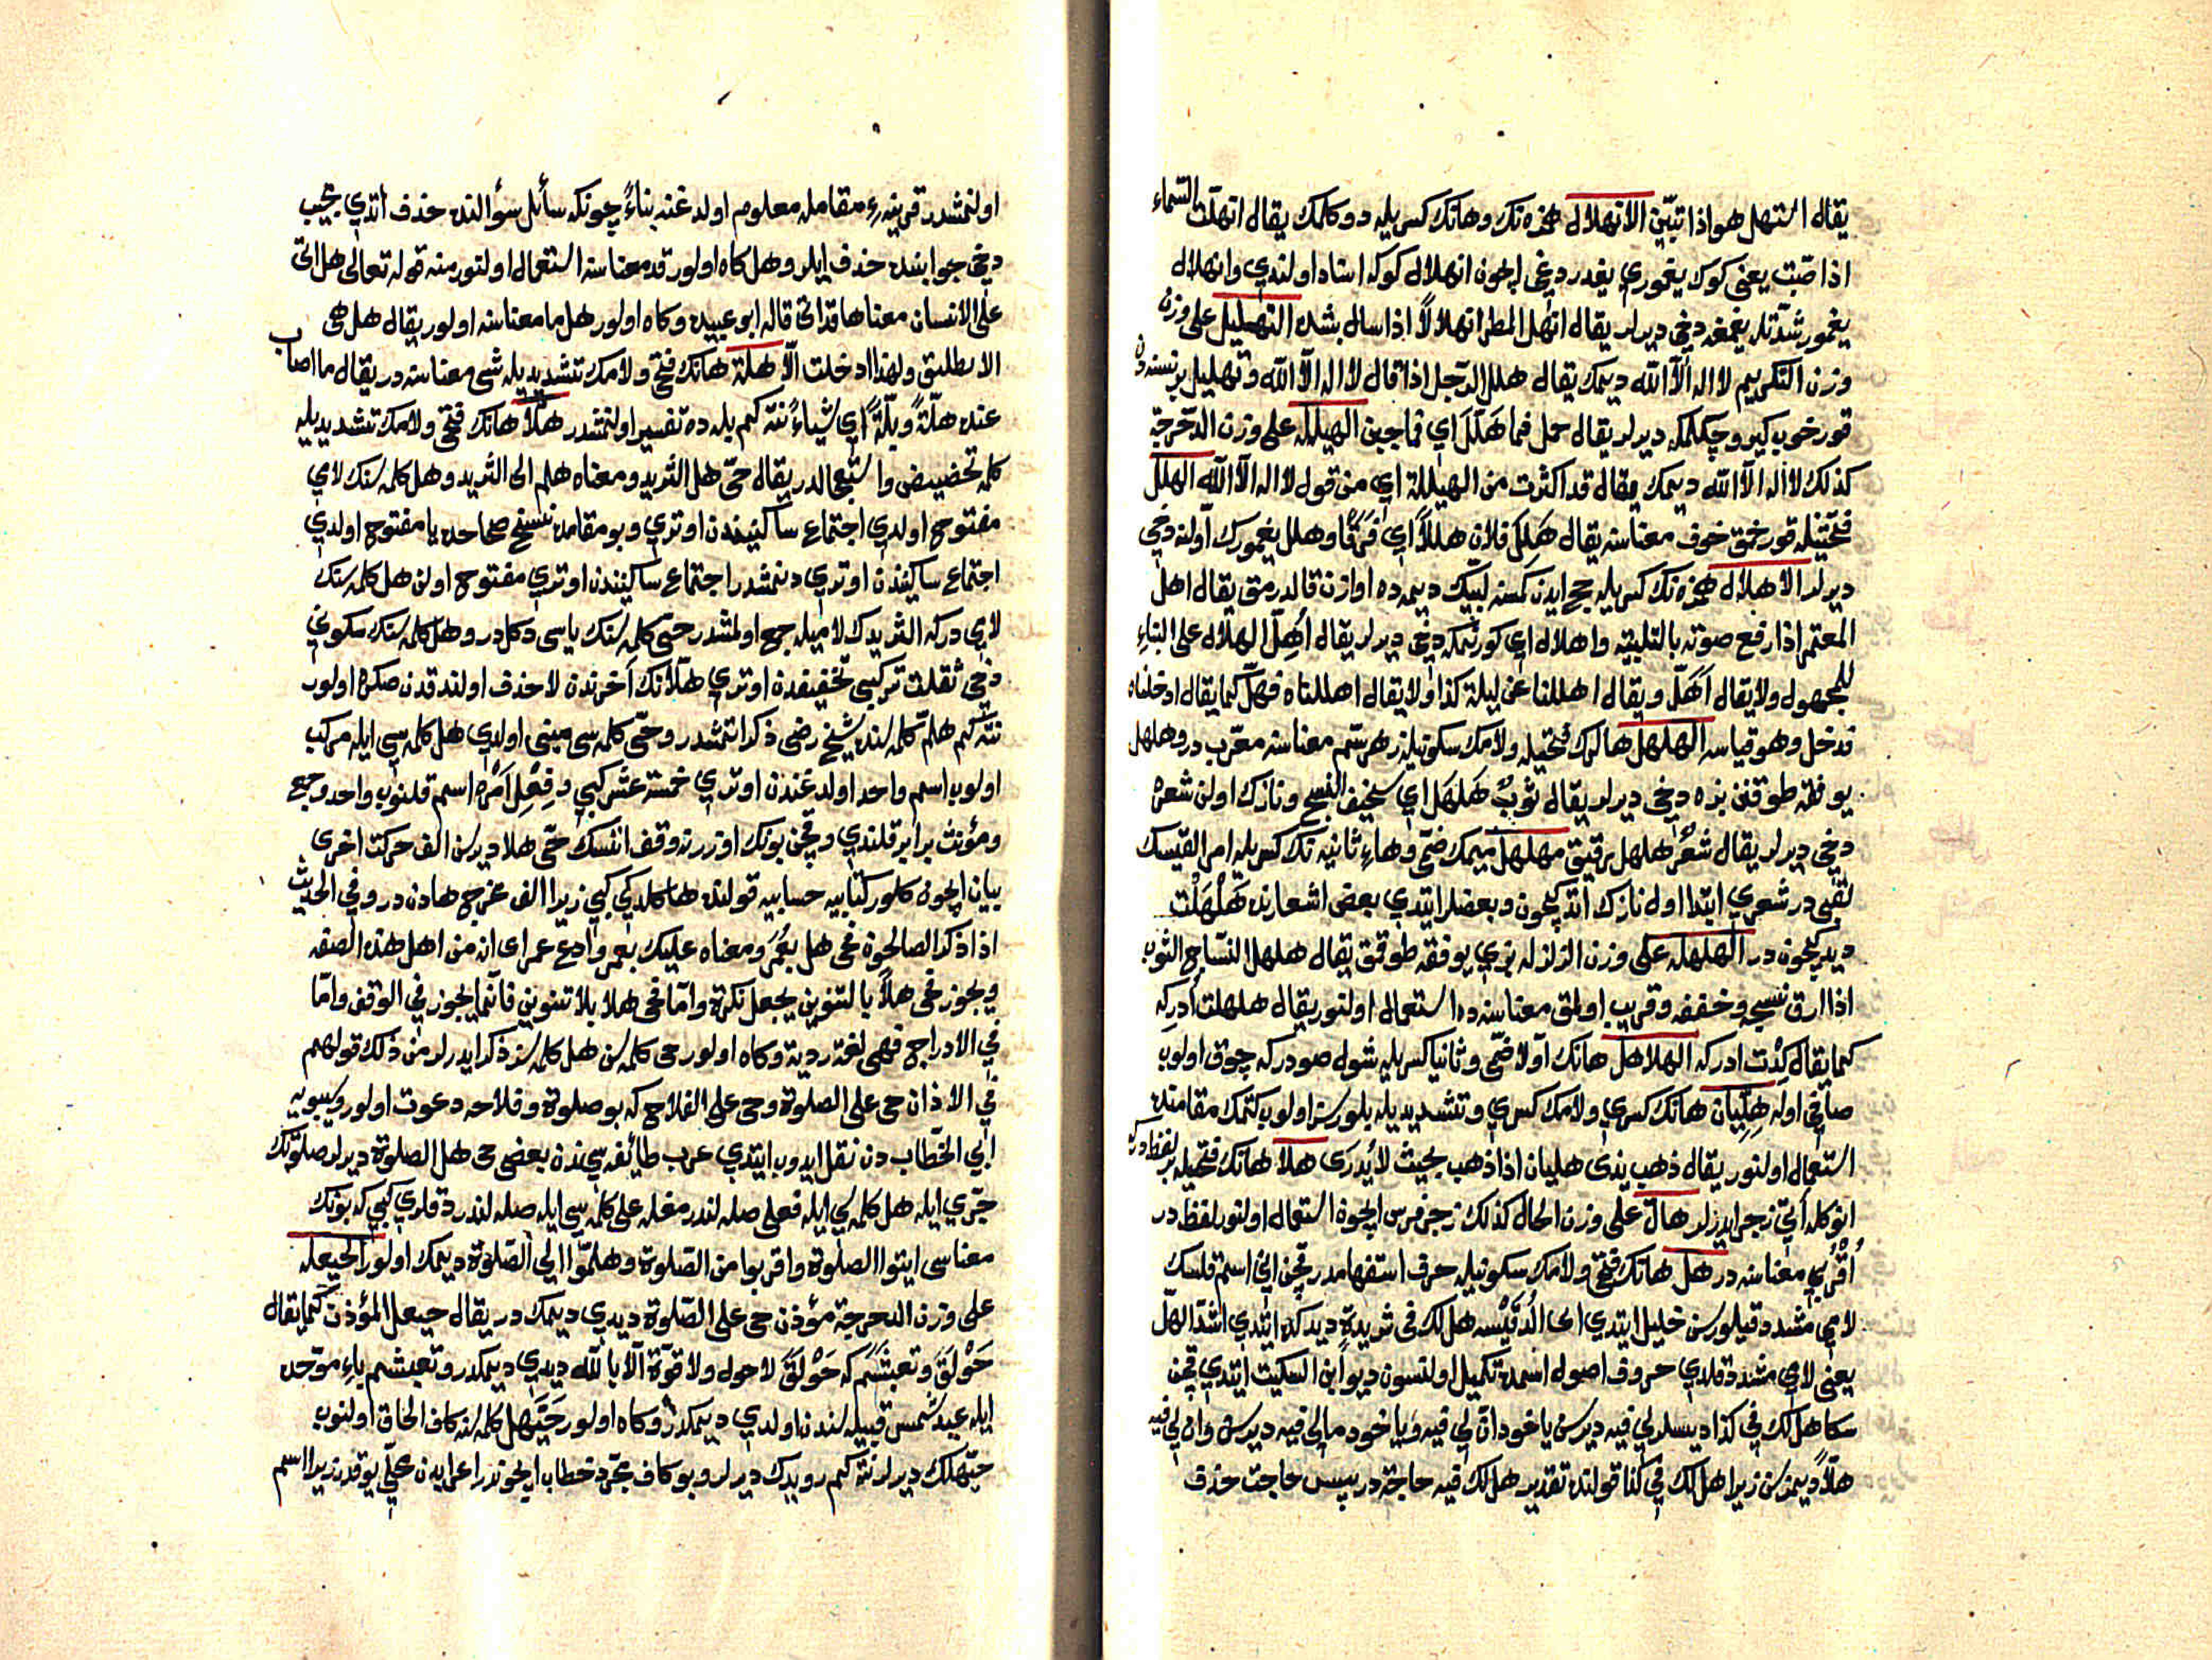 يقال استهل هو اذا تبيّن الانهلال همزه نك وهانك كسريله دوكلمك يقال انهلّت السّماء
اذا صبّت يعنى كوك يغموري يغدردغى ايچون انهلال كوكه اسناد اولندي وانهلال
يغمور شدّتله يغمغه دخي ديرلر يقال انهلّ المطر انهلالاً اذا سال بشدة التهليل على وزن
وزن التكريم لا اله الاّ الله ديمك يقال هلل الرّجل اذا قال لا اله الاّ الله وتهليل بر نسنه دن
قورخوب كيرو چكلمكه ديرلر يقال حمل فما هَلَّلَ اي فما جبن الهيلله على وزن الدّحرجة
كذلك لا اله الاّ الله ديمك يقال قد اكثرت من الهيللة اي من قول لا اله الاّ الله الهلل
فتحتيله قورخمق خوف معناسنه يقال هَلِكَ فلان هللاً اي فَرَقًا وهلل يغمورك اولنه دخي
ديرلر الاهلال همزه نك كسريله حج ايدن كمسنه لبّيك ديمه ده اوازن قالدرمق يقال اهلّ
المعتمر اذا رفع صوته بالتلبية واهلال اي كورنمكه دخي ديرلر يقال اُهِلّ الهلال على البناء
للمجهول ولا يقال اَهَلّ ويقال اهللنا عن ليلة كذا ولا يقال اهللناه فهلّ كما يقال ادخلناه
فدخل وهو قياسه الهلهل هالرك فتحيله ولامك سكونيله زهر سم معناسنه معرّب در وهلهل
يوفقه طوقنن بزه دخي ديرلر يقال ثوبٌ هَلهَل اي سخيف النسج ونازك اولن شعره
دخي ديرلر يقال شعر هلهل رقيق مهلهل ميمك ضمّي وهاء ثانيه نك كسريله امرا القيسك
لقبى در شعري ابتدا اول نازك اتدكيچون وبعضلر ايتدي بعض اشعارنده هَلْهَلْت
ديديكچون در الهلهله على وزن الزلزله بزي يوفقه طوقمق يقال هلهل النسّاج الثوب
اذا ارق نسجه وخففه وقريب اولمق معناسنه ده استعمال اولنور يقال هلهلت اُدركه
كما يقال كِدْت ادركه الهلاهل هانك اوّلا ضمّي وثانيا كسريله شول صودركه چوق اولوب
صافي اوله هِلِّيان هانك كسري ولامك كسري وتشديديله بلورسز اولوب كتمك مقامنده
استعمال اولنور يقال ذهب بذى هليان اذا ذهب بحيث لا يُدرَى هلا هانك فتحيله بر لفظدركه
انوكله اتى زجر ايدرلر هال على وزن الحال كذلك زجر فرس ايچون استعمال اولنور لفظدر
اُقْرُبي معناسنه در هل هانك فتحي ولامك سكونيله حرف استفهامدر قچن اني اسم قلسك
لامي مشدد قيلورسن خليل ايتدي ابى الدُّقَيْسه هل لك في ثريدةٍ ديدكده ايتدي اشدّ الهلّ
يعنى لامي مشدد قلدي حروف اصول اسمده تكميل اولنسون ديو ابن السكيت ايتدي قچن
سكا هل لك في كذا ديسلر لي فيه ديرسن ياخود انّ لي فيه ويا خود مالي فيه ديرسن وان لي فيه
هلّاً ديمزسن زيرا هل لك في كذا قولنده تقدير هل لك فيه حاجة در پس حاجت حذف
اولنمشدر قرينهء مقامله معلوم اولدغنه بناءً چونكه سائل سؤالنده حذف اتدي مجيب
دخي جوابنده حذف ايلر وهل كاه اولور قد معناسنه استعمال اولنور منه قوله تعالى هل اتى
على الانسان معناها قد اتى قاله ابو عبيده وكاه اولور هل ما معناسنه اولور يقال هل هى
الا بطلبق ولهذا ادخلت الّا هلة هانك فتحي ولامك تشديديله شى معناسنه در يقال ما اصاب
عنده هلّة وبلّةً اي شياءً نته كم بلّه ده تفسير اولنمشدر هَلاّ هانك فتحي ولامك تشديديله
كلمهء تحضيض واستعجالدر يقال حىّ هل الثريد ومعناه هلم الى الثريد وهل كلمه سنك لامي
مفتوح اولدي اجتماع ساكنيندن اوتري وبو مقامده نسخ صحاحده يا مفتوح اولدي
اجتماع ساكنيندن اوتري دينمشدر اجتماع ساكنيندن اوتري مفتوح اولن هل كلمه سنك
لامي دركه الثريدك لاميله جمع اولمشدر حىّ كلمه سنك ياسى دكلدر وهل كلمه سنك سكوني
دخي ثقلت تركيبي تخفيفدن اوتري هلاّنك اخرندن لا حذف اولندقدن صكره اولور
نته كم هلمّ كلمه سنده شيخ رضى ذكر اتمشدر وحىّ كلمه سى مبني اولدي هل كلمه سي ايله مركب
اولوب اسم واحد اولدغندن اوتري خمسة عشر كبي وفِعْل اَمْره اسم قلنوب واحد وجمع
ومؤنث برابر قلندي وقچن بونك اوزرنه وقف اتسك حىّ هلا ديرسن الف حركت اخرى
بيان ايچون كلور كتابيه حسابيه قولنده ها كلدوكي كبي زيرا الف مخرجي هادن در وفي الحديث
اذا ذكر الصالحون فحى هل بعُمَر ومعناه عليك بعمر وادع عمر اى ان من اهل هذه الصفه
ويجوز فحى هلاً بالتنوين يجعل نكرة وامّا فحى هلا بلا تنوين فانّما يجوز في الوقف وامّا
في الادراج فهى لغة ردية وكاه اولور حى كلمه سن هل كلمه سنز ذكر ايدرلر من ذلك قولهم
في الاذان حى على الصلوة وحى على الفلاح كه بو صلوة وفلاحه دعوت اولور وسيبويه
ابي الخطّاب دن نقل ايدوب ايتدي عرب طائفه سي ندن بعضى حى هل الصلوة ديرلر صلوتك
جرّي ايله هل كلمه سي ايله فعلى صله لندر مغله على كلمه سي ايله صله لندردقلري كبي كه بونك
معناسى ايتوا الصلوة واقربوا من الصّلوة وهلمّوا الى الصّلوة ديمك اولور الحيعله
على وزن الدحرجة مؤذن حى على الصّلوة ديدي ديمك در يقال حيعل المؤذن كما يقال
حَوْلَقَ وتعبشَمَ كه حَوْلَقَ لا حول ولا قوّة الّا بالله ديدي ديمكدر وتعبشم باء موحّده
ايله عبد شمس قبيله سندن اولدي ديمكدر وكاه اولور حَيَّهل كلمه سنه كاف الحاق اولنوب
حيّهلك ديرلر نته كم رويدك ديرلر وبو كاف مجرّد خطاب ايچوندر اعرابدن محلّى يوقدر زيرا اسم